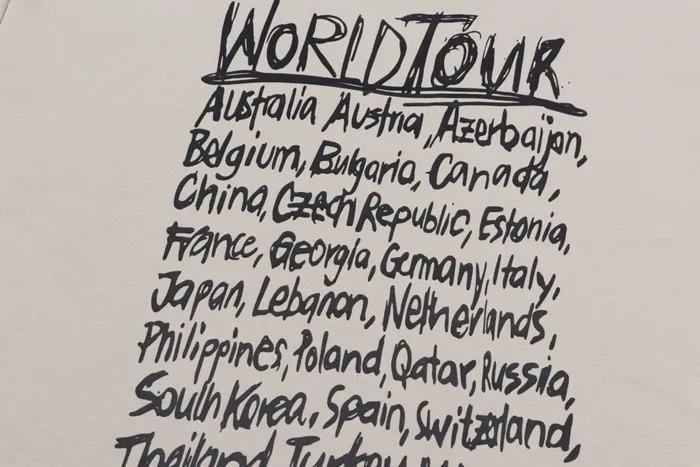 WORLD TOUR
Australia Austria, Azerbaijan,
Belgium, Bulgaria, Canada,
China, Czech Republic, Estonia,
France, Georgia, Germany, Italy,
Japan, Lebanon, Netherlands,
Philippines, Poland, Qatar, Russia,
South Korea, Spain, Switzerland,
Thailand, Turkey